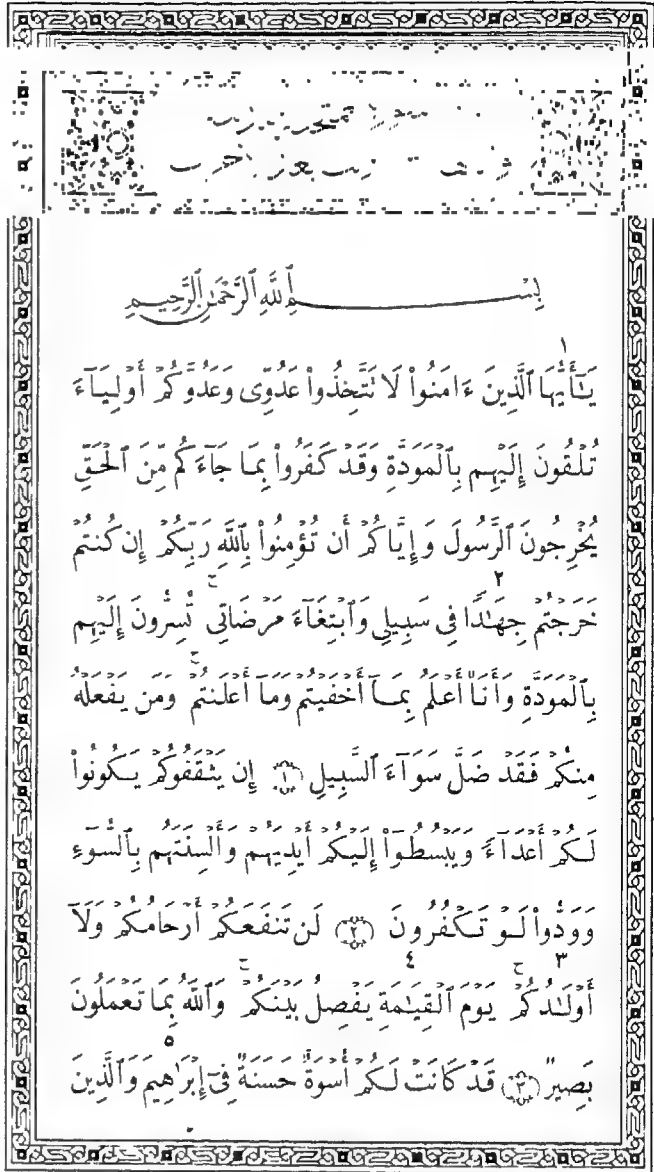 بِسْمِ ٱللَّهِ ٱلرَّحْمَٰنِ ٱلرَّحِيمِ
١
يَٰٓأَيُّهَا ٱلَّذِينَ ءَامَنُوا۟ لَا تَتَّخِذُوا۟ عَدُوِّى وَعَدُوَّكُمْ أَوْلِيَآءَ
تُلْقُونَ إِلَيْهِم بِٱلْمَوَدَّةِ وَقَدْ كَفَرُوا۟ بِمَا جَآءَكُم مِّنَ ٱلْحَقِّ
يُخْرِجُونَ ٱلرَّسُولَ وَإِيَّاكُمْ أَن تُؤْمِنُوا۟ بِٱللَّهِ رَبِّكُمْ إِن كُنتُمْ
٢
خَرَجْتُمْ جِهَٰدًا فِى سَبِيلِى وَٱبْتِغَآءَ مَرْضَاتِى ۚ تُسِرُّونَ إِلَيْهِم
بِٱلْمَوَدَّةِ وَأَنَا۠ أَعْلَمُ بِمَآ أَخْفَيْتُمْ وَمَآ أَعْلَنتُمْ ۚ وَمَن يَفْعَلْهُ
مِنكُمْ فَقَدْ ضَلَّ سَوَآءَ ٱلسَّبِيلِ ١ إِن يَثْقَفُوكُمْ يَكُونُوا۟
لَكُمْ أَعْدَآءً وَيَبْسُطُوٓا۟ إِلَيْكُمْ أَيْدِيَهُمْ وَأَلْسِنَتَهُم بِٱلسُّوٓءِ
وَوَدُّوا۟ لَوْ تَكْفُرُونَ ٢ لَن تَنفَعَكُمْ أَرْحَامُكُمْ وَلَآ
٣ ٤
أَوْلَٰدُكُمْ ۚ يَوْمَ ٱلْقِيَٰمَةِ يَفْصِلُ بَيْنَكُمْ ۚ وَٱللَّهُ بِمَا تَعْمَلُونَ
٥
بَصِيرٌ ٣ قَدْ كَانَتْ لَكُمْ أُسْوَةٌ حَسَنَةٌ فِىٓ إِبْرَٰهِيمَ وَٱلَّذِينَ